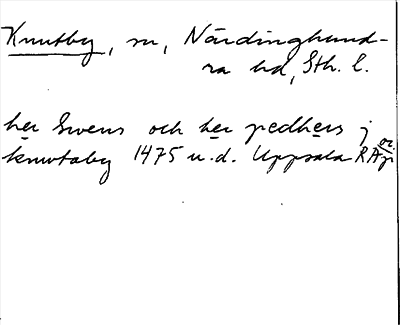 Knutby, sn, Närdinghund-
ra hd, Sth. l.
her Swens och her pedhers j
knwtaby 1475 u.d. Uppsala RAp or.